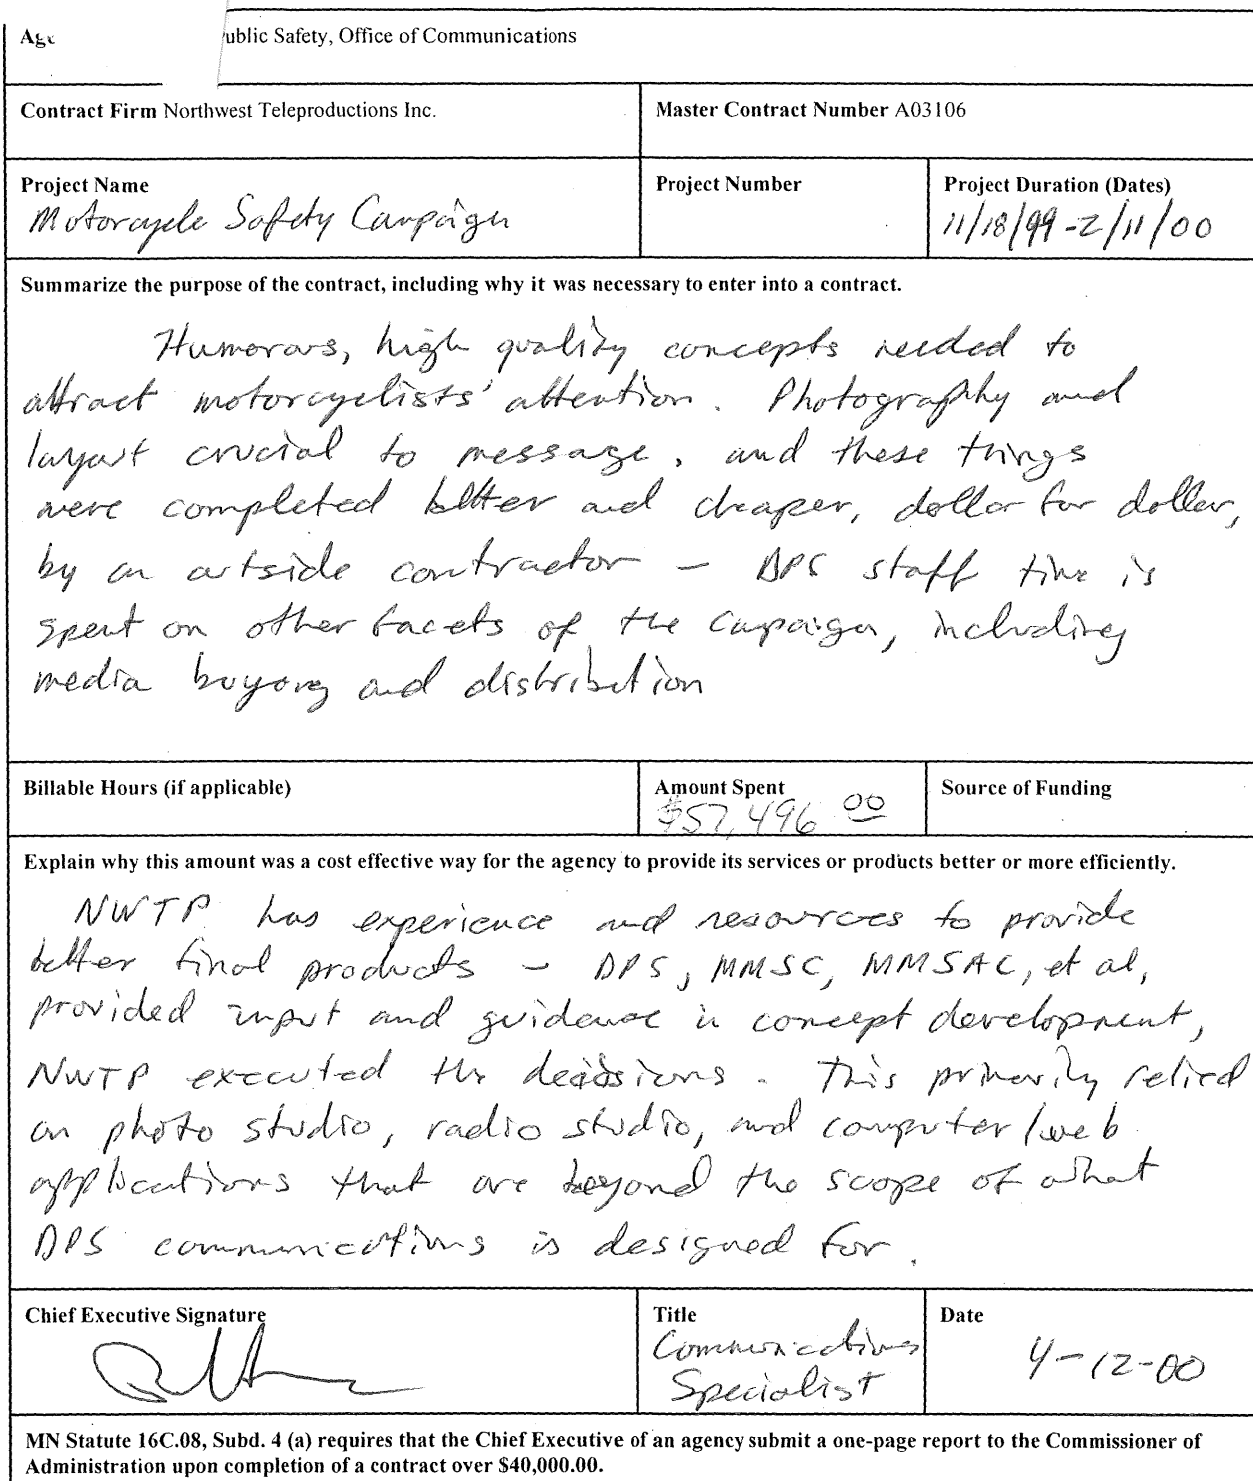 Age ublic Safety, Office of Communications
Contract Firm Northwest Teleproductions Inc.
Master Contract Number A03106
Project Name
Motorcycle Safety Campaign
Project Number
Project Duration (Dates)
11/18/99-2/11/00
Summarize the purpose of the contract, including why it was necessary to enter into a contract.
Humorous, high quality concepts needed to
attract motorcyclists' attention. Photography and
layout crucial to message, and these things
were completed better and cheaper, dollar for dollar,
by an outside contractor - DPS staff time is
spent on other facets of the campaign, including
media buying and distribution
Billable Hours (if applicable)
Amount Spent
$57,496 00
Source of Funding
Explain why this amount was a cost effective way for the agency to provide its services or products better or more efficiently.
NWTP has experience and resources to provide
better final products - DPS, MMSC, MMSAC, et al,
provided input and guidance in concept development,
NWTP executed the decisions. This primarily relied
on photo studio, radio studio, and computer/web
applications that are beyond the scope of what
DPS communications is designed for.
Chief Executive Signature
Title
Communications
Specialist
Date
4-12-00
MN Statute 16C.08, Subd. 4 (a) requires that the Chief Executive of an agency submit a one-page report to the Commissioner of
Administration upon completion of a contract over $40,000.00.